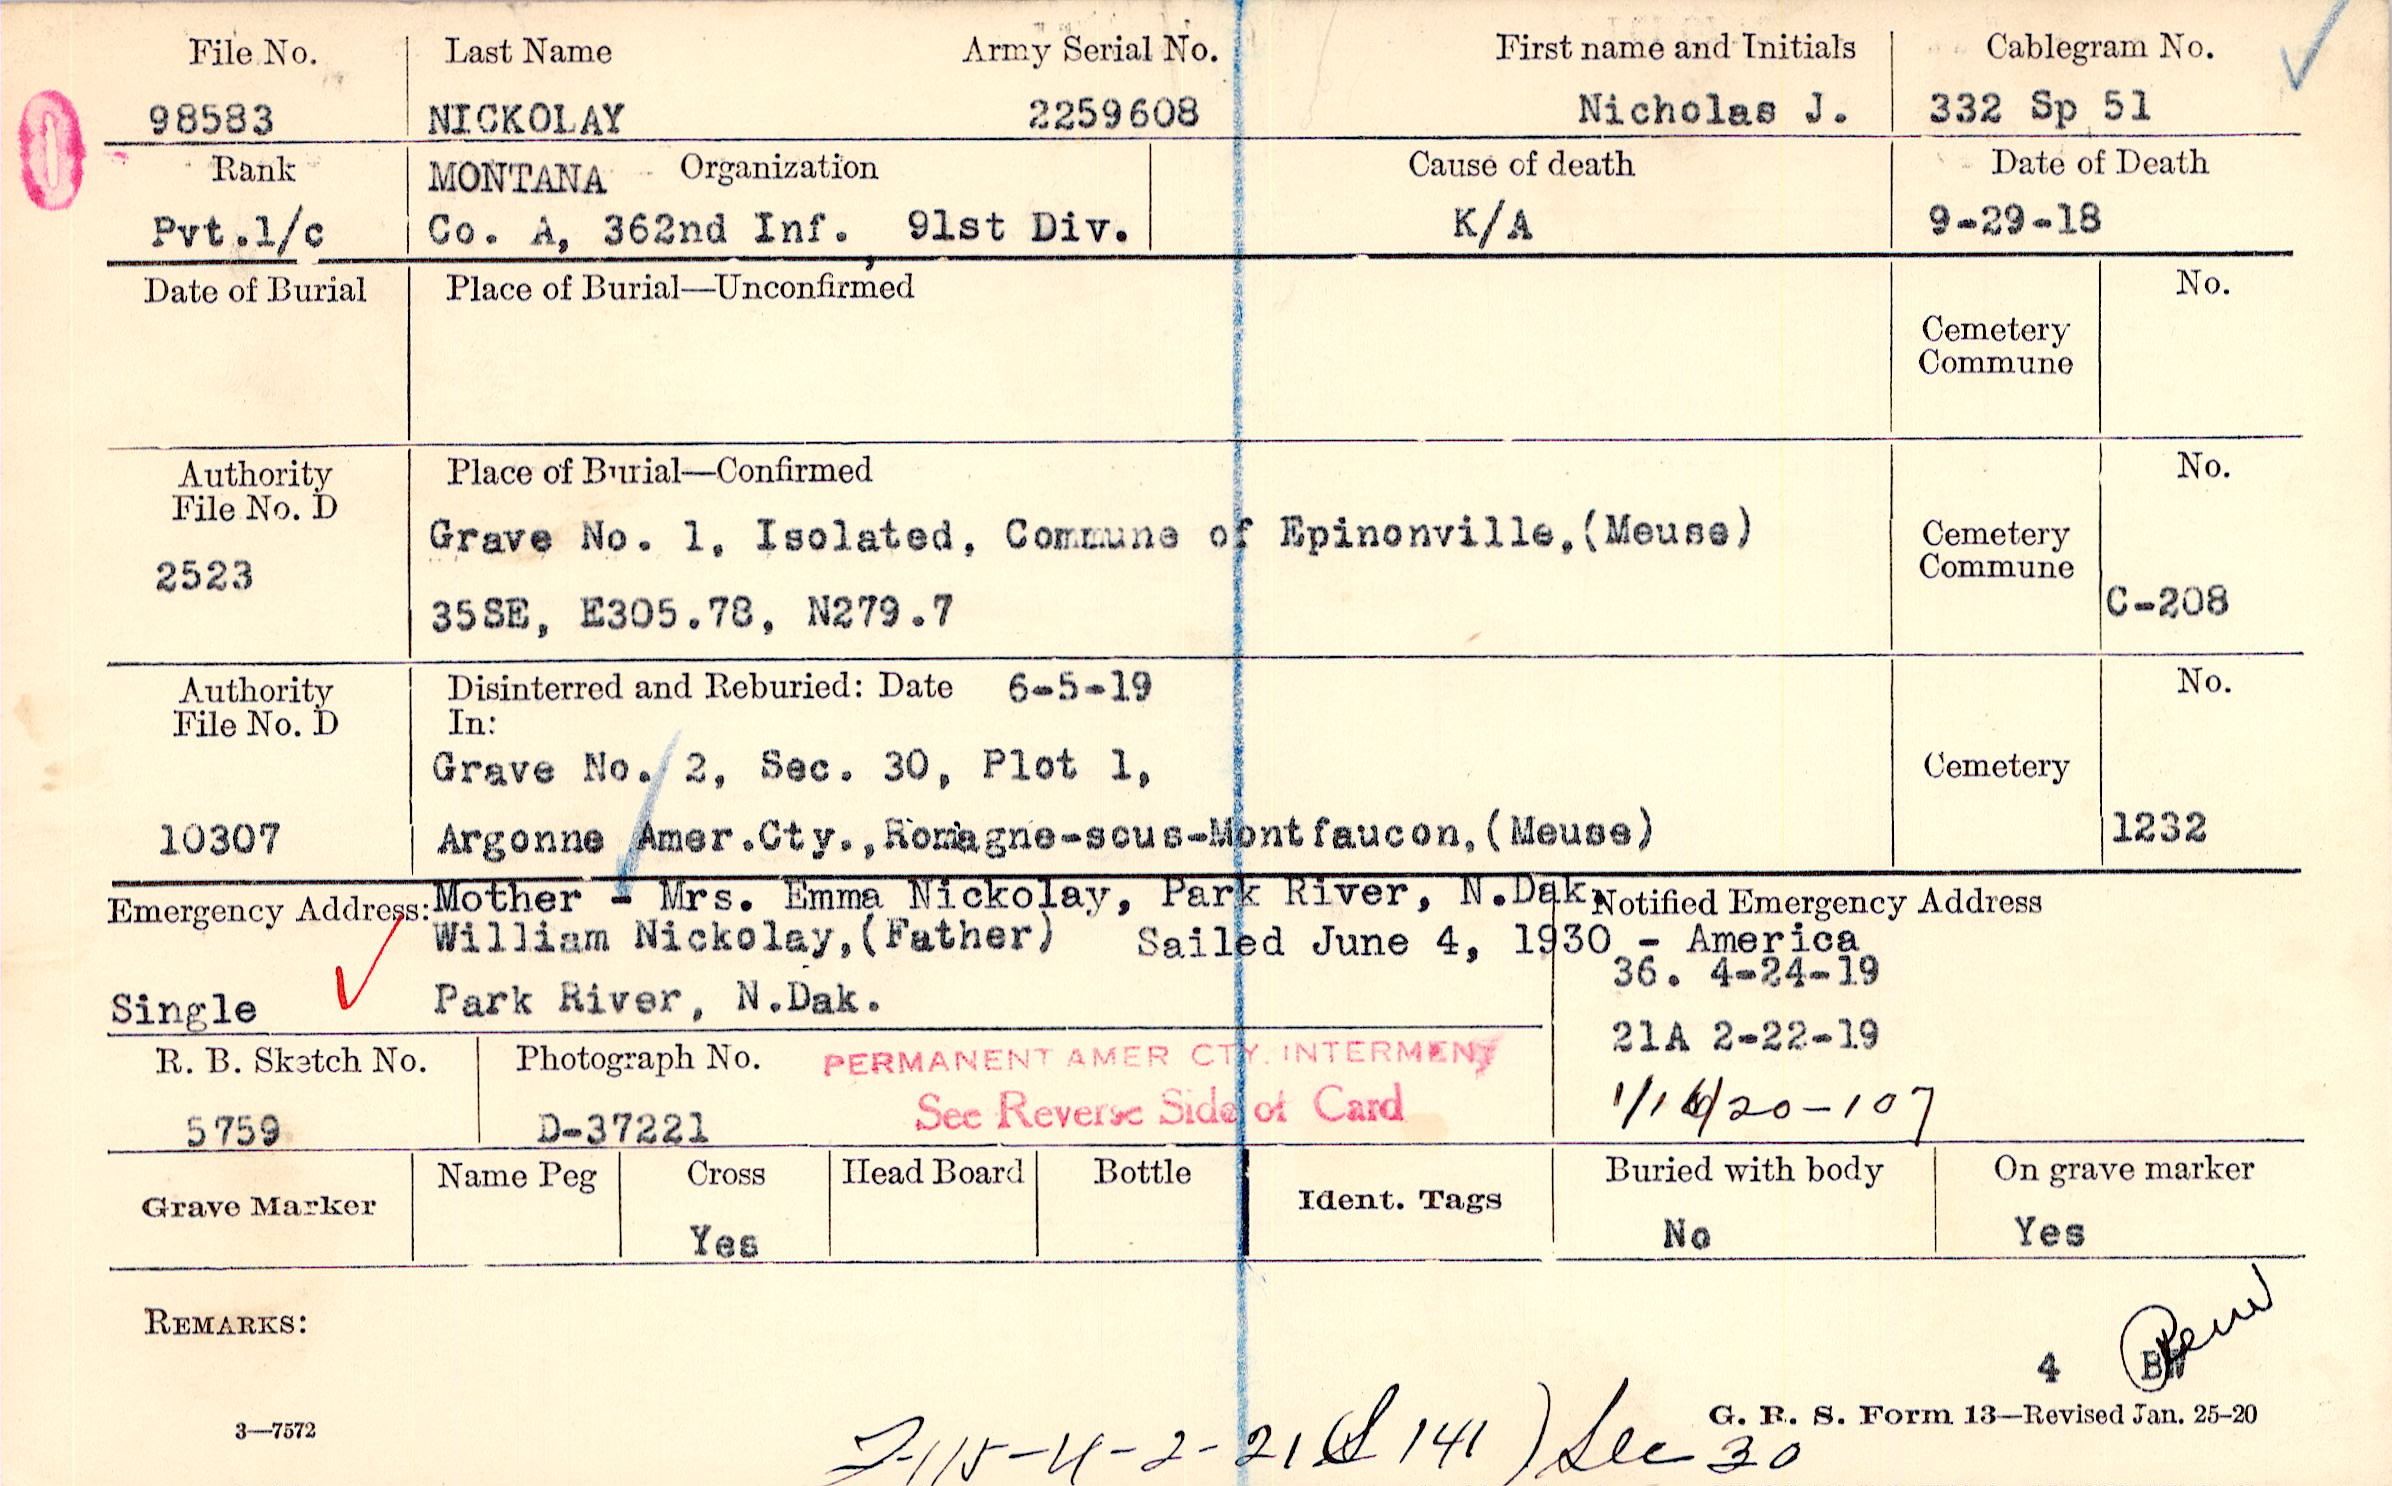 File No. Last Name Army Serial No. First name and Initials Cablegram No.
98583 NICKOLAY 2259608 Nicholas J. 332 Sp 51
Rank MONTANA Organization Cause of death Date of Death
Pvt.1/c Co. A, 362nd Inf. 91st Div. K/A 9-29-18
Date of Burial Place of Burial—Unconfirmed No.
Cemetery
Commune
Authority Place of Burial—Confirmed No.
File No. D
Grave No. 1, Isolated, Commune of Epinonville,(Meuse) Cemetery
2523 Commune
35SE, E305.78, N279.7 C-208
Authority Disinterred and Reburied: Date 6-5-19 No.
File No. D In:
Grave No. 2, Sec. 30, Plot 1, Cemetery
10307 Argonne Amer.Cty.,Romagne-sous-Montfaucon,(Meuse) 1232
Emergency Address: Mother - Mrs. Emma Nickolay, Park River, N.Dak. Notified Emergency Address
William Nickolay,(Father) Sailed June 4, 1930 - America
36. 4-24-19
Single Park River, N.Dak.
21A 2-22-19
R. B. Sketch No. Photograph No. PERMANENT AMER CTY. INTERMENT
See Reverse Side of Card 1/16/20-107
5759 D-37221
Grave Marker Name Peg Cross Head Board Bottle Ident. Tags Buried with body On grave marker
Yes No Yes
REMARKS:
4 BW
3—7572 G. R. S. Form 13—Revised Jan. 25-20
115-4-2-21 (S 141) Sec 30